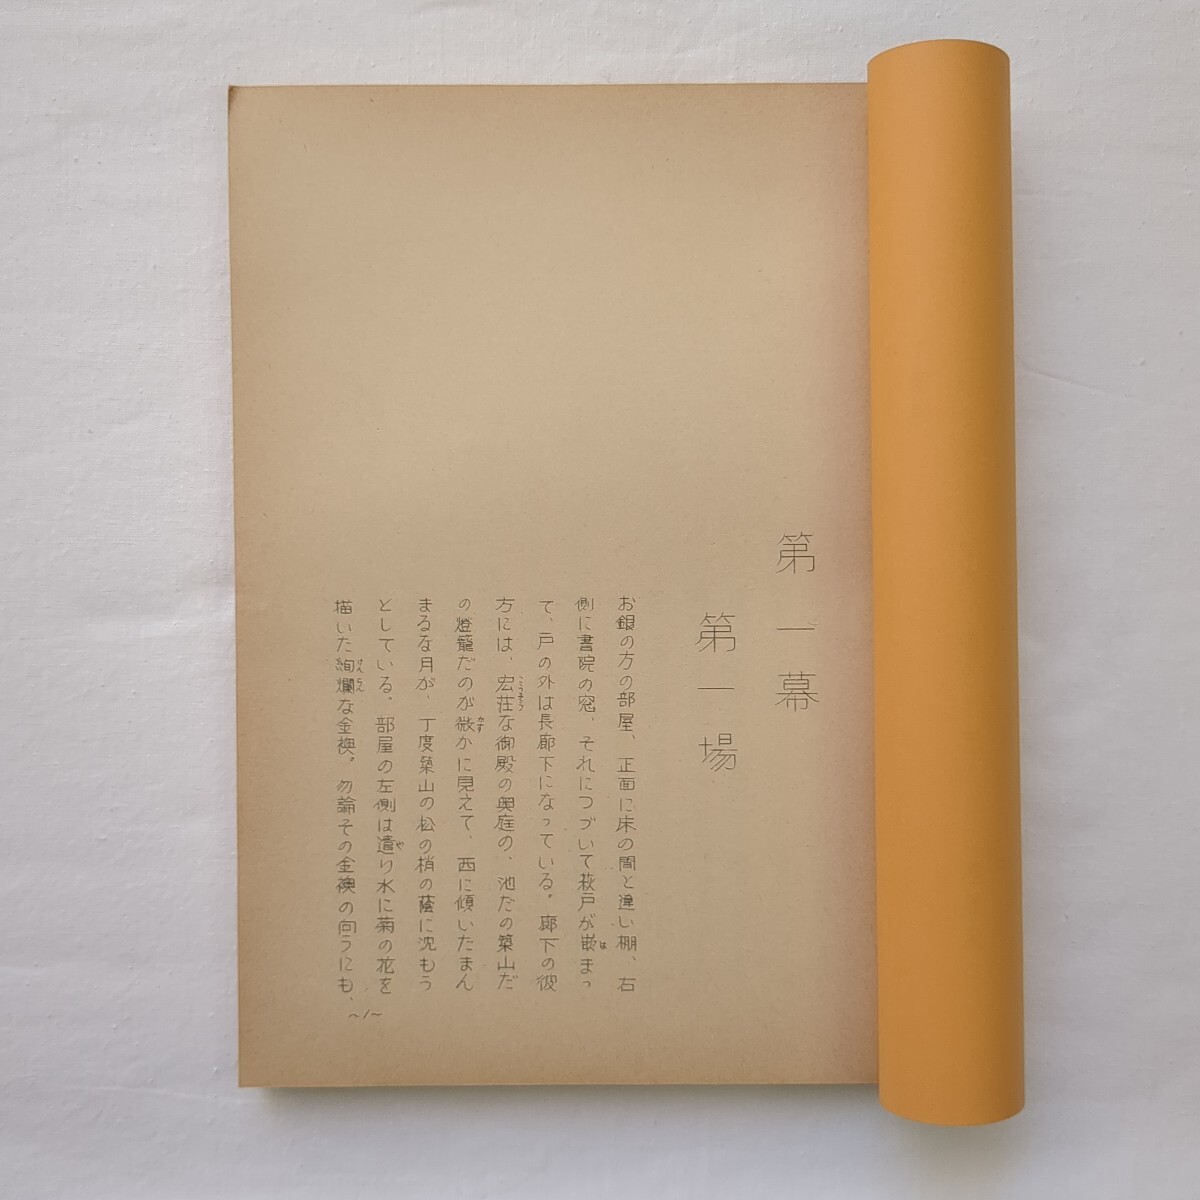 第一幕
第一場
お銀の方の部屋、正面に床の間と違い棚、右
側に書院の窓、それにつづいて萩戸が嵌まっ
て、戸の外は長廊下になっている。廊下の彼
方には、宏荘な御殿の奥庭の、池だの築山だ
の燈籠だのが微かに見えて、西に傾いたまん
まるな月が、丁度築山の松の梢の蔭に沈もう
としている。部屋の左側は遣り水に菊の花を
描いた絢爛な金襖。勿論その金襖の向うにも、
~1~